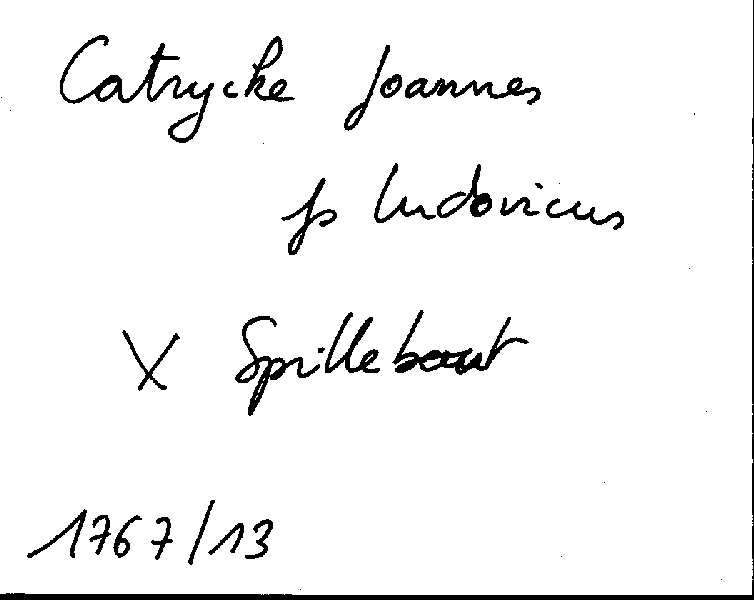 Catrycke Joannes
fs Ludovicus
X Spillebout
1767/13